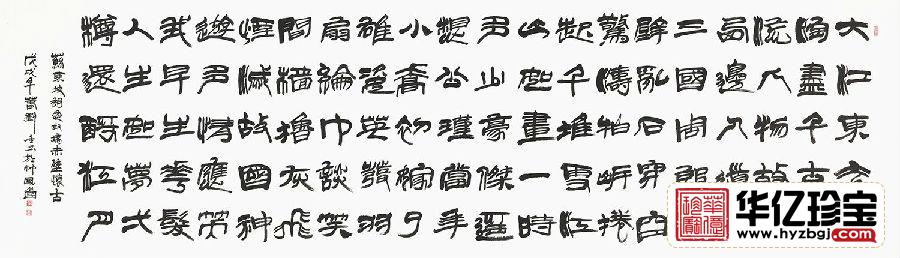 大江東去
淘盡千古
流人物故
西邊人
三國周
壁亂石穿空
驚濤拍岸捲
起千堆雪江
山如畫一時
多少豪傑遥
想公瑾當年
小喬初嫁了
雄姿英發羽
扇綸巾談笑
間檣擄灰飛
煙滅故國神
遊多情應笑
我早生華髮
人生如夢弌
樽還酹江月
蘇東坡詞念奴嬌赤壁懷古
戊戌年
华亿珍宝
www.hyzbgj.com